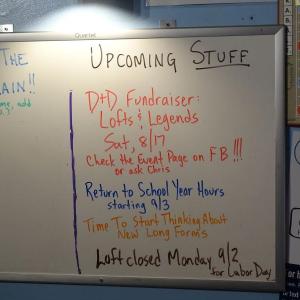 THE
AIN!!
me, add
Quartet
UPCOMING STUFF
D+D Fundraiser:
Lofts & Legends
Sat, 8/17
Check the Event Page on FB!!!
or ask Chris
Return to School Year Hours
starting 9/3
Time To Start Thinking About
New Long Forms
Loft closed Monday 9/2
for Labor Day